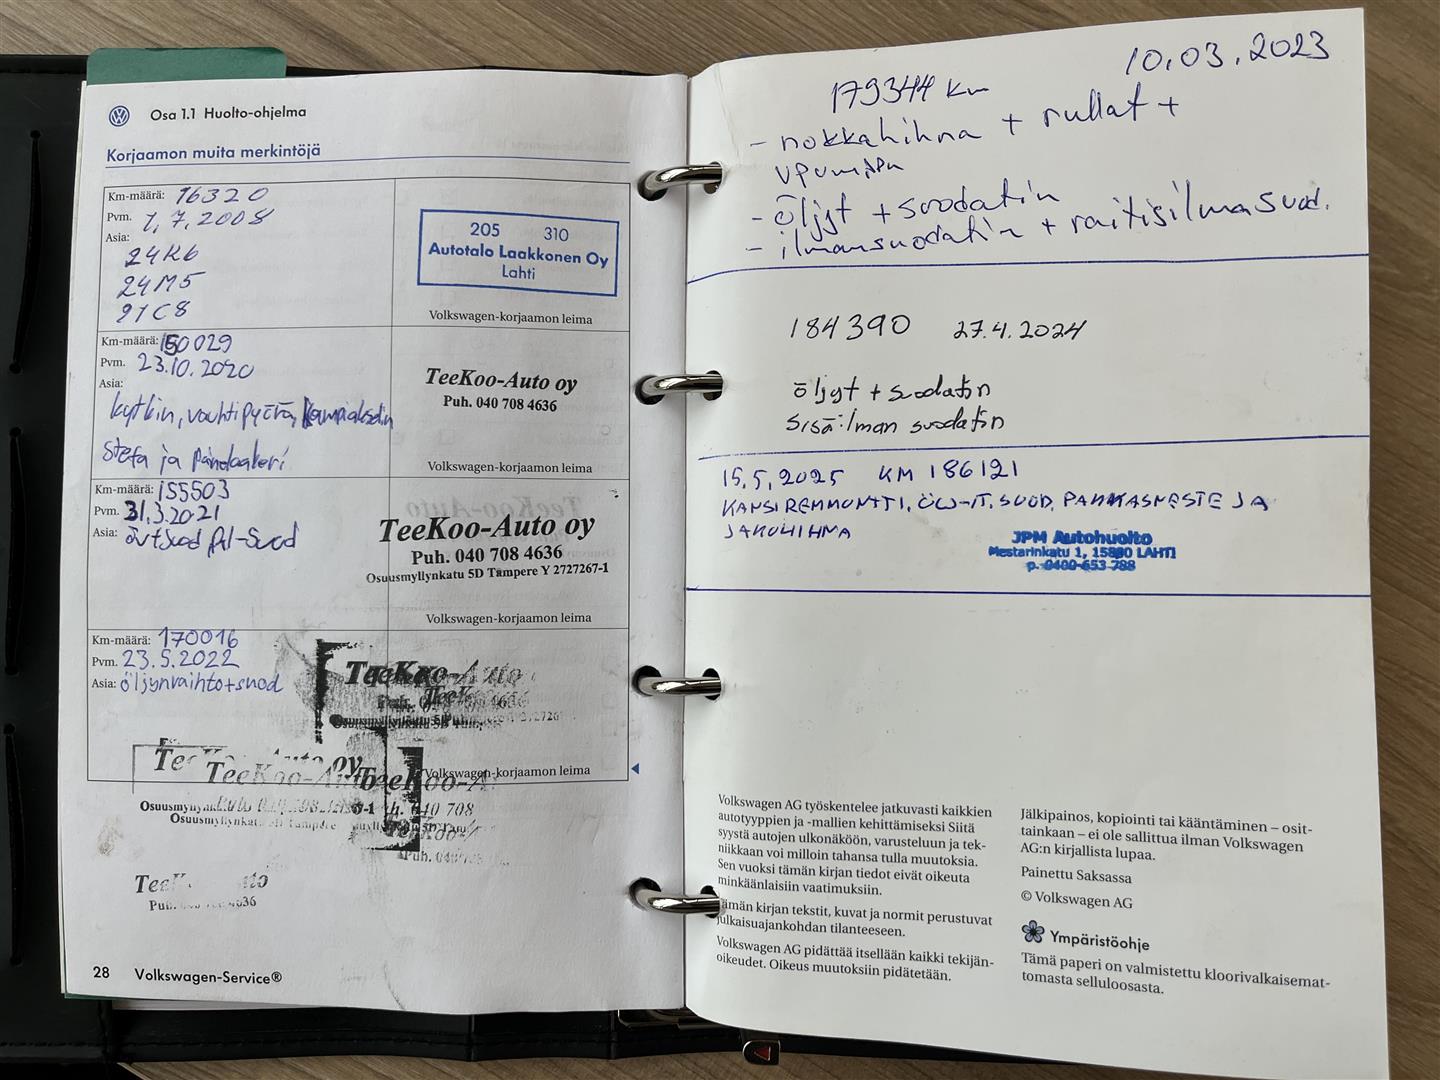 Osa 1.1 Huolto-ohjelma
Korjaamon muita merkintöjä
Km-määrä: 16320
Pvm. 1.7.2008
Asia:
24K6
24M5
21C8
205 310
Autotalo Laakkonen Oy
Lahti
Volkswagen-korjaamon leima
Km-määrä: 150029
Pvm. 23.10.2020
Asia:
kytkin, vauhtipyörä, kampiakselin
stefa ja painelaakeri
TeeKoo-Auto oy
Puh. 040 708 4636
Volkswagen-korjaamon leima
Km-määrä: 155503
Pvm. 31.3.2021
Asia:
TeeKoo-Auto oy
Puh. 040 708 4636
Osuusmyllynkatu 5D Tampere Y 2727267-1
Volkswagen-korjaamon leima
Km-määrä: 170016
Pvm. 23.5.2022
Asia: öljynvaihto+suod
TeeKoo-Auto
Volkswagen-korjaamon leima
TeeKoo-Auto oy
28 Volkswagen-Service®
10.03.2023
179344 km
- nokkahihna + rullat +
vpumppu
- öljyt + suodatin
- ilmansuodatin + raitisilmasuod.
184390 27.4.2024
öljyt + suodatin
sisäilman suodatin
15.5.2025 KM 186121
KANSIREMMONTTI, ÖLJYT, SUOD, PAKKASNESTE JA
JAKOHIHNA
JPM Autohuolto
Mestarinkatu 1, 15800 LAHTI
p. 0400-653 788
Volkswagen AG työskentelee jatkuvasti kaikkien
autotyyppien ja -mallien kehittämiseksi Siitä
syystä autojen ulkonäköön, varusteluun ja tek-
niikkaan voi milloin tahansa tulla muutoksia.
Sen vuoksi tämän kirjan tiedot eivät oikeuta
minkäänlaisiin vaatimuksiin.
Tämän kirjan tekstit, kuvat ja normit perustuvat
julkaisuajankohdan tilanteeseen.
Volkswagen AG pidättää itsellään kaikki tekijän-
oikeudet. Oikeus muutoksiin pidätetään.
Jälkipainos, kopiointi tai kääntäminen – osit-
tainkaan – ei ole sallittua ilman Volkswagen
AG:n kirjallista lupaa.
Painettu Saksassa
© Volkswagen AG
Ympäristöohje
Tämä paperi on valmistettu kloorivalkaisemat-
tomasta selluloosasta.